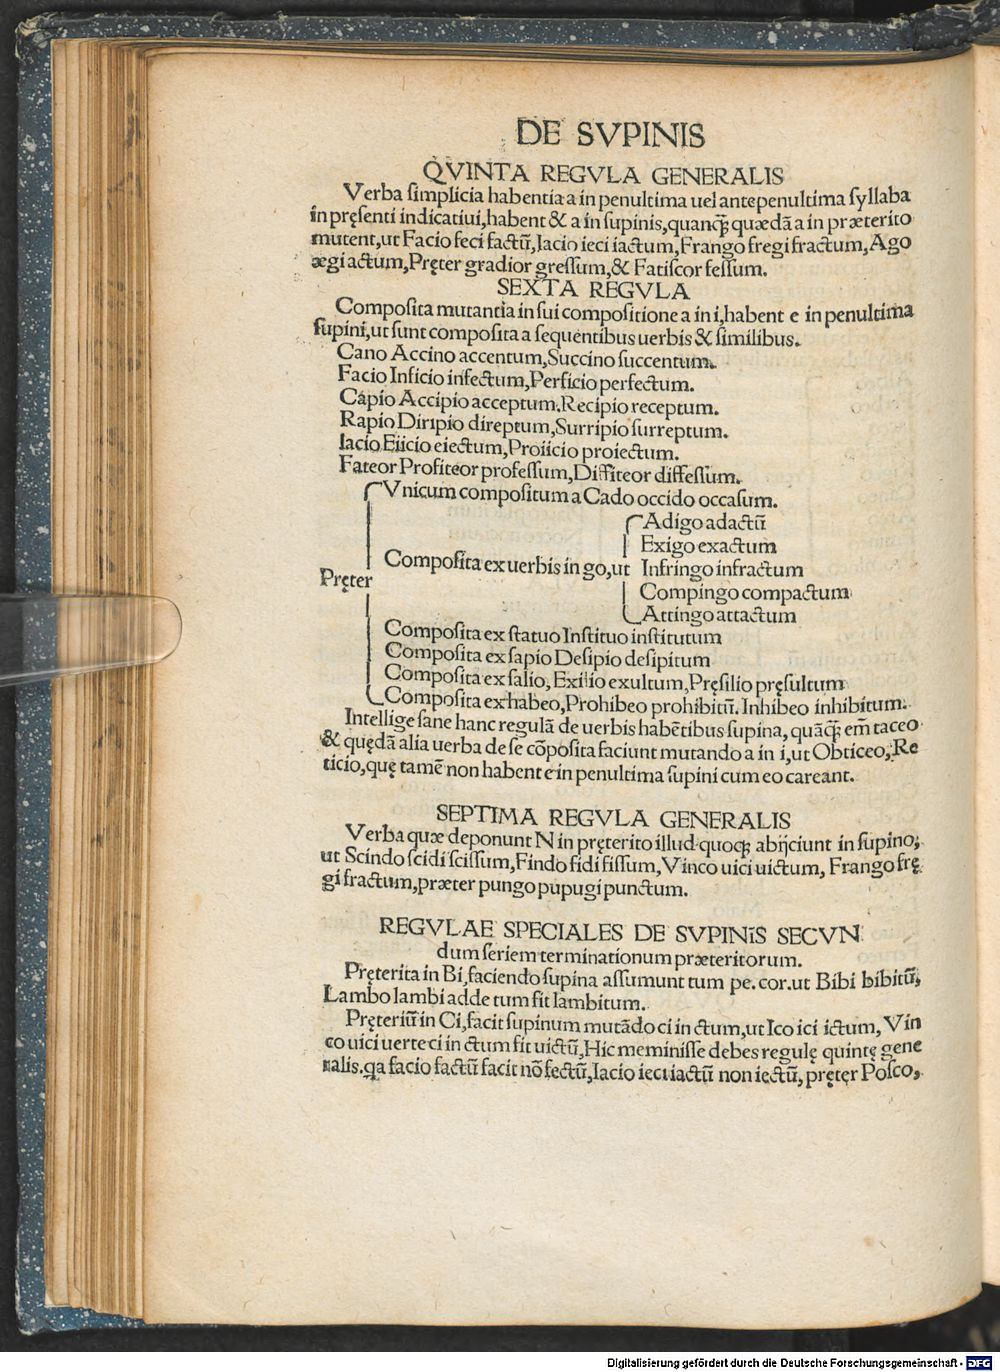 DE SVPINIS
QVINTA REGVLA GENERALIS
Verba ſimplicia habentia a in penultima uel antepenultima ſyllaba
in pręſenti indicatiui,habent & a in ſupinis,quanq̃ quædã a in præterito
mutent,ut Facio feci factũ,Iacio ieci iactum,Frango fregi fractum,Ago
ægi actum,Pręter gradior greſſum,& Fatiſcor feſſum.
SEXTA REGVLA
Compoſita mutantia in ſui compoſitione a in i,habent e in penultima
ſupini,ut ſunt compoſita a ſequentibus uerbis & ſimilibus.
Cano Accino accentum,Succino ſuccentum.
Facio Inficio infectum,Perficio perfectum.
Capio Accipio acceptum.Recipio receptum.
Rapio Diripio direptum,Surripio ſurreptum.
Iacio Eiicio eiectum,Proiicio proiectum.
Fateor Profiteor profeſſum,Diffiteor diffeſſum.
Vnicum compoſitum a Cado occido occaſum.
Adigo adactũ
Exigo exactum
Compoſita ex uerbis in go,ut Infringo infractum
Pręter
Compingo compactum
Attingo attactum
Compoſita ex ſtatuo Inſtituo inſtitutum
Compoſita ex ſapio Deſipio deſipitum
Compoſita ex ſalio, Exilio exultum,Pręſilio pręſultum
Compoſita ex habeo,Prohibeo prohibitũ. Inhibeo inhibitum.
Intellige ſane hanc regulã de uerbis habẽtibus ſupina, quãq̃ em̃ taceo
& quędã alia uerba de ſe cõpoſita faciunt mutando a in i,ut Obticeo, Re
ticio,quę tamẽ non habent e in penultima ſupini cum eo careant.
SEPTIMA REGVLA GENERALIS
Verba quæ deponunt N in pręterito illud quoq; abijciunt in ſupino,
ut Scindo ſcidi ſciſſum,Findo fidi fiſſum,Vinco uici uictum, Frango frę
gi fractum,præter pungo pupugi punctum.
REGVLAE SPECIALES DE SVPINIS SECVN
dum ſeriem terminationum præteritorum.
Pręterita in Bi,faciendo ſupina aſſumunt tum pe.cor.ut Bibi bibitũ,
Lambo lambi adde tum fit lambitum.
Pręteriũ in Ci,facit ſupinum mutãdo ci in ctum,ut Ico ici ictum, Vin
co uici uerte ci in ctum fit uictũ,Hic meminiſſe debes regulę quintę gene
ralis.qa facio factũ facit nõ fectũ,Iacio ieci iactũ non iectũ, pręter Poſco,
Digitalisierung gefördert durch die Deutsche Forschungsgemeinschaft - DFG